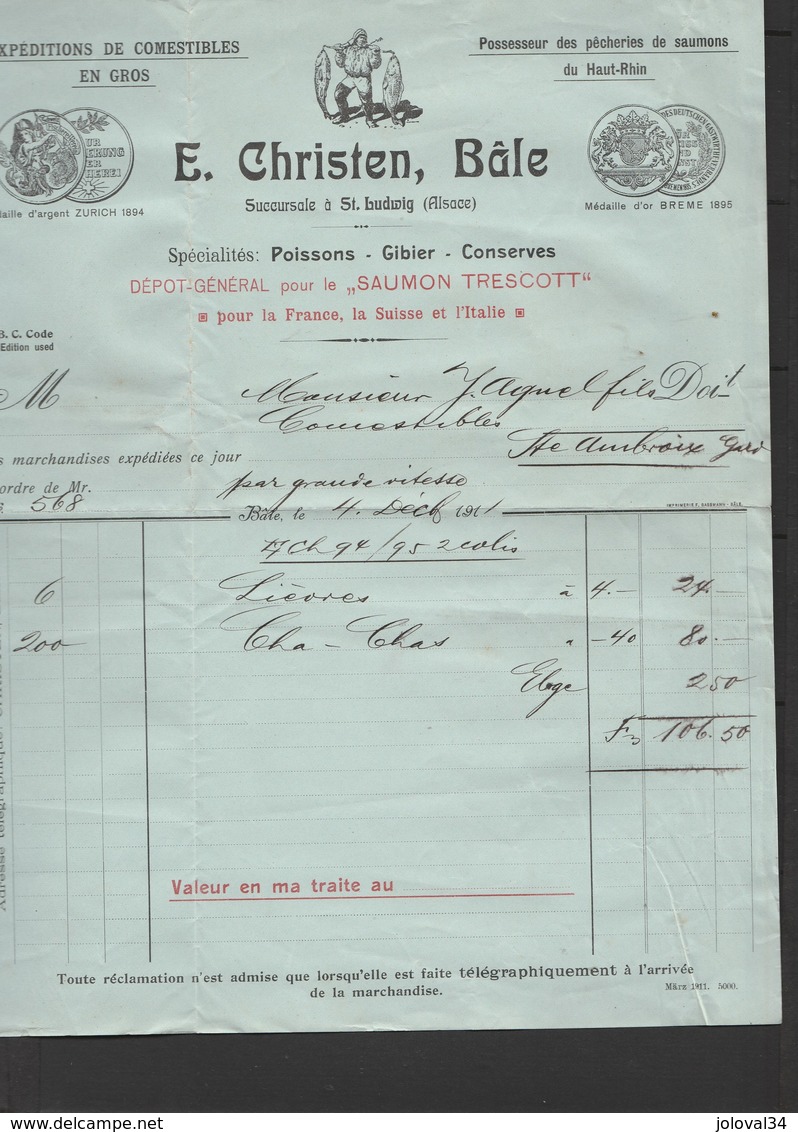 XPÉDITIONS DE COMESTIBLES
EN GROS
Possesseur des pêcheries de saumons
du Haut-Rhin
E. Christen, Bâle
Succursale à St. Ludwig (Alsace)
daille d'argent ZURICH 1894
Médaille d'or BREME 1895
Spécialités: Poissons - Gibier - Conserves
DÉPOT-GÉNÉRAL pour le „SAUMON TRESCOTT“
pour la France, la Suisse et l'Italie
B. C. Code
Edition used
M Monsieur J. Agnel fils Doit
Comestibles
Ste Ambroix Gard
s marchandises expédiées ce jour
ordre de Mr. par grande vitesse
568
Bâle, le 4. Décb 1911
IMPRIMERIE F. GASSMANN - BÂLE.
Ach 94/95 2 colis
6 Lièvres à 4.- 24.-
200 Cha-Chas " -40 80.-
Ebge 2 50
Fs 106.50
Adresse télégraphique:
Valeur en ma traite au
Toute réclamation n'est admise que lorsqu'elle est faite télégraphiquement à l'arrivée
de la marchandise.
März 1911. 5000.
Delcampe.net
joloval34